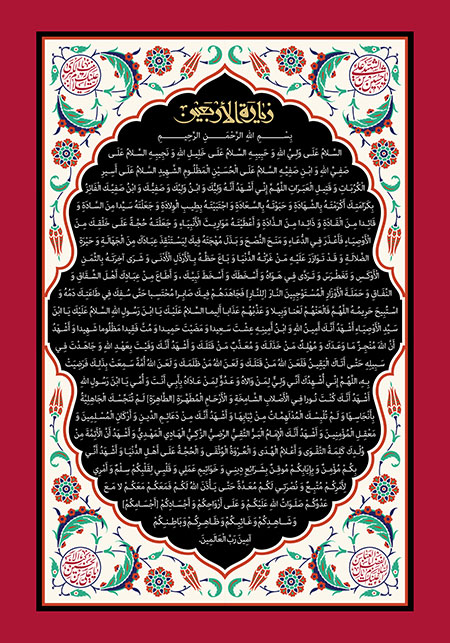 زيارة الأربعين
بِسْمِ اللهِ الرَّحْمَنِ الرَّحِيمِ
السَّلامُ عَلَى وَلِيِّ اللهِ وَ حَبِيبِهِ السَّلامُ عَلَى خَلِيلِ اللهِ وَ نَجِيبِهِ السَّلامُ عَلَى
صَفِيِّ اللهِ وَ ابْنِ صَفِيِّهِ السَّلامُ عَلَى الْحُسَيْنِ الْمَظْلُومِ الشَّهِيدِ السَّلامُ عَلَى أَسِيرِ
الْكُرُبَاتِ وَ قَتِيلِ الْعَبَرَاتِ اللَّهُمَّ إِنِّي أَشْهَدُ أَنَّهُ وَلِيُّكَ وَ ابْنُ وَلِيِّكَ وَ صَفِيُّكَ وَ ابْنُ صَفِيِّكَ الْفَائِزُ
بِكَرَامَتِكَ أَكْرَمْتَهُ بِالشَّهَادَةِ وَ حَبَوْتَهُ بِالسَّعَادَةِ وَ اجْتَبَيْتَهُ بِطِيبِ الْوِلادَةِ وَ جَعَلْتَهُ سَيِّدا مِنَ السَّادَةِ وَ
قَائِدا مِنَ الْقَادَةِ وَ ذَائِدا مِنَ الذَّادَةِ وَ أَعْطَيْتَهُ مَوَارِيثَ الْأَنْبِيَاءِ وَ جَعَلْتَهُ حُجَّةً عَلَى خَلْقِكَ مِنَ
الْأَوْصِيَاءِ فَأَعْذَرَ فِي الدُّعَاءِ وَ مَنَحَ النُّصْحَ وَ بَذَلَ مُهْجَتَهُ فِيكَ لِيَسْتَنْقِذَ عِبَادَكَ مِنَ الْجَهَالَةِ وَ حَيْرَةِ
الضَّلالَةِ وَ قَدْ تَوَازَرَ عَلَيْهِ مَنْ غَرَّتْهُ الدُّنْيَا وَ بَاعَ حَظَّهُ بِالْأَرْذَلِ الْأَدْنَى وَ شَرَى آخِرَتَهُ بِالثَّمَنِ
الْأَوْكَسِ وَ تَغَطْرَسَ وَ تَرَدَّى فِي هَوَاهُ وَ أَسْخَطَكَ وَ أَسْخَطَ نَبِيَّكَ ، وَ أَطَاعَ مِنْ عِبَادِكَ أَهْلَ الشِّقَاقِ وَ
النِّفَاقِ وَ حَمَلَةَ الْأَوْزَارِ الْمُسْتَوْجِبِينَ النَّارَ [لِلنَّارِ] فَجَاهَدَهُمْ فِيكَ صَابِرا مُحْتَسِبا حَتَّى سُفِكَ فِي طَاعَتِكَ دَمُهُ وَ
اسْتُبِيحَ حَرِيمُهُ اللَّهُمَّ فَالْعَنْهُمْ لَعْنا وَبِيلا وَ عَذِّبْهُمْ عَذَابا أَلِيما السَّلامُ عَلَيْكَ يَا ابْنَ رَسُولِ اللهِ السَّلامُ عَلَيْكَ يَا ابْنَ
سَيِّدِ الْأَوْصِيَاءِ أَشْهَدُ أَنَّكَ أَمِينُ اللهِ وَ ابْنُ أَمِينِهِ عِشْتَ سَعِيدا وَ مَضَيْتَ حَمِيدا وَ مُتَّ فَقِيدا مَظْلُوما شَهِيدا وَ أَشْهَدُ
أَنَّ اللهَ مُنْجِزٌ مَا وَعَدَكَ وَ مُهْلِكٌ مَنْ خَذَلَكَ وَ مُعَذِّبٌ مَنْ قَتَلَكَ وَ أَشْهَدُ أَنَّكَ وَفَيْتَ بِعَهْدِ اللهِ وَ جَاهَدْتَ فِي
سَبِيلِهِ حَتَّى أَتَاكَ الْيَقِينُ فَلَعَنَ اللهُ مَنْ قَتَلَكَ وَ لَعَنَ اللهُ مَنْ ظَلَمَكَ وَ لَعَنَ اللهُ أُمَّةً سَمِعَتْ بِذَلِكَ فَرَضِيَتْ
بِهِ اللَّهُمَّ إِنِّي أُشْهِدُكَ أَنِّي وَلِيٌّ لِمَنْ وَالاهُ وَ عَدُوٌّ لِمَنْ عَادَاهُ بِأَبِي أَنْتَ وَ أُمِّي يَا ابْنَ رَسُولِ اللهِ
أَشْهَدُ أَنَّكَ كُنْتَ نُورا فِي الْأَصْلابِ الشَّامِخَةِ وَ الْأَرْحَامِ الْمُطَهَّرَةِ [الطَّاهِرَةِ] لَمْ تُنَجِّسْكَ الْجَاهِلِيَّةُ
بِأَنْجَاسِهَا وَ لَمْ تُلْبِسْكَ الْمُدْلَهِمَّاتُ مِنْ ثِيَابِهَا وَ أَشْهَدُ أَنَّكَ مِنْ دَعَائِمِ الدِّينِ وَ أَرْكَانِ الْمُسْلِمِينَ وَ
مَعْقِلِ الْمُؤْمِنِينَ وَ أَشْهَدُ أَنَّكَ الْإِمَامُ الْبَرُّ التَّقِيُّ الرَّضِيُّ الزَّكِيُّ الْهَادِي الْمَهْدِيُّ وَ أَشْهَدُ أَنَّ الْأَئِمَّةَ مِنْ
وُلْدِكَ كَلِمَةُ التَّقْوَى وَ أَعْلامُ الْهُدَى وَ الْعُرْوَةُ الْوُثْقَى وَ الْحُجَّةُ عَلَى أَهْلِ الدُّنْيَا وَ أَشْهَدُ أَنِّي
بِكُمْ مُؤْمِنٌ وَ بِإِيَابِكُمْ مُوقِنٌ بِشَرَائِعِ دِينِي وَ خَوَاتِيمِ عَمَلِي وَ قَلْبِي لِقَلْبِكُمْ سِلْمٌ وَ أَمْرِي
لِأَمْرِكُمْ مُتَّبِعٌ وَ نُصْرَتِي لَكُمْ مُعَدَّةٌ حَتَّى يَأْذَنَ اللهُ لَكُمْ فَمَعَكُمْ مَعَكُمْ لا مَعَ
عَدُوِّكُمْ صَلَوَاتُ اللهِ عَلَيْكُمْ وَ عَلَى أَرْوَاحِكُمْ وَ أَجْسَادِكُمْ [أَجْسَامِكُمْ]
وَ شَاهِدِكُمْ وَ غَائِبِكُمْ وَ ظَاهِرِكُمْ وَ بَاطِنِكُمْ
آمِينَ رَبَّ الْعَالَمِينَ.